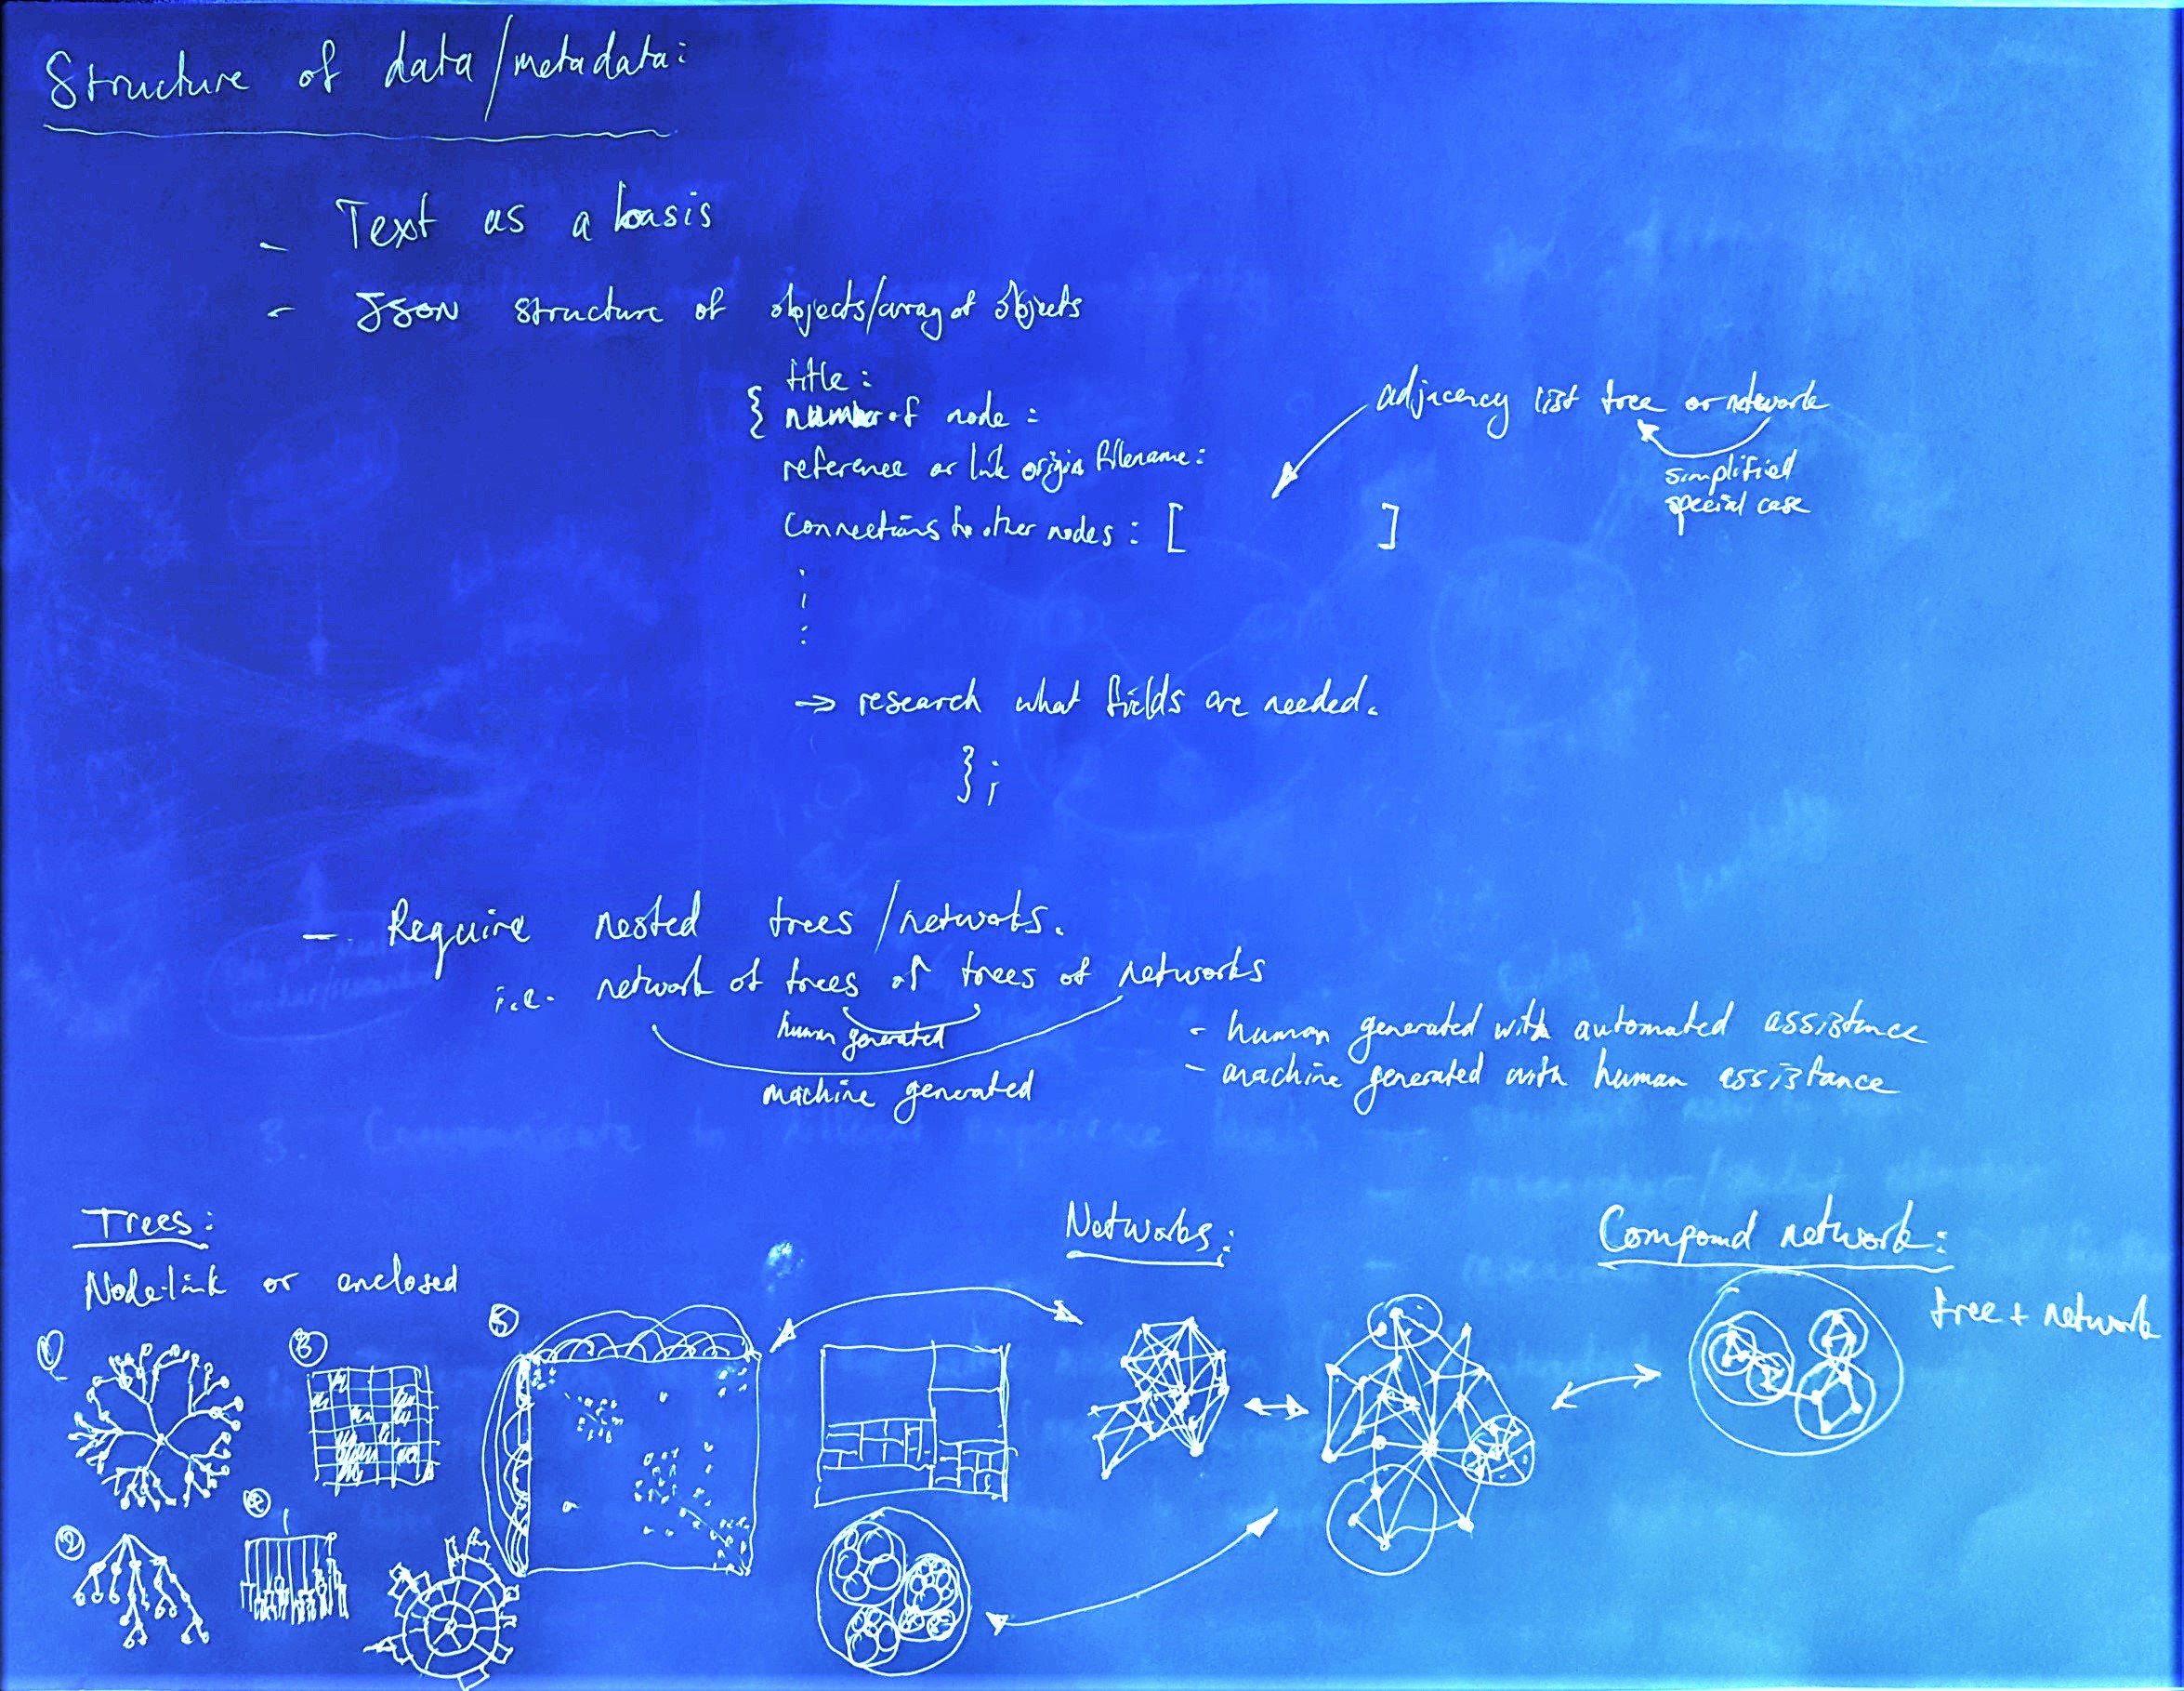 Structure of data/metadata:
- Text as a basis
- JSON structure of objects/array of objects
title:
{ number of node:
reference or link origin filename:
connections to other nodes: [ ]
adjacency list tree or network
simplified
special case
:
:
→ research what fields are needed.
};
- Require nested trees/networks.
i.e. network of trees of trees of networks
human generated
machine generated
- human generated with automated assistance
- machine generated with human assistance
Trees:
Node-link or enclosed
1
2
3
4
5
Networks:
Compound network:
tree + network